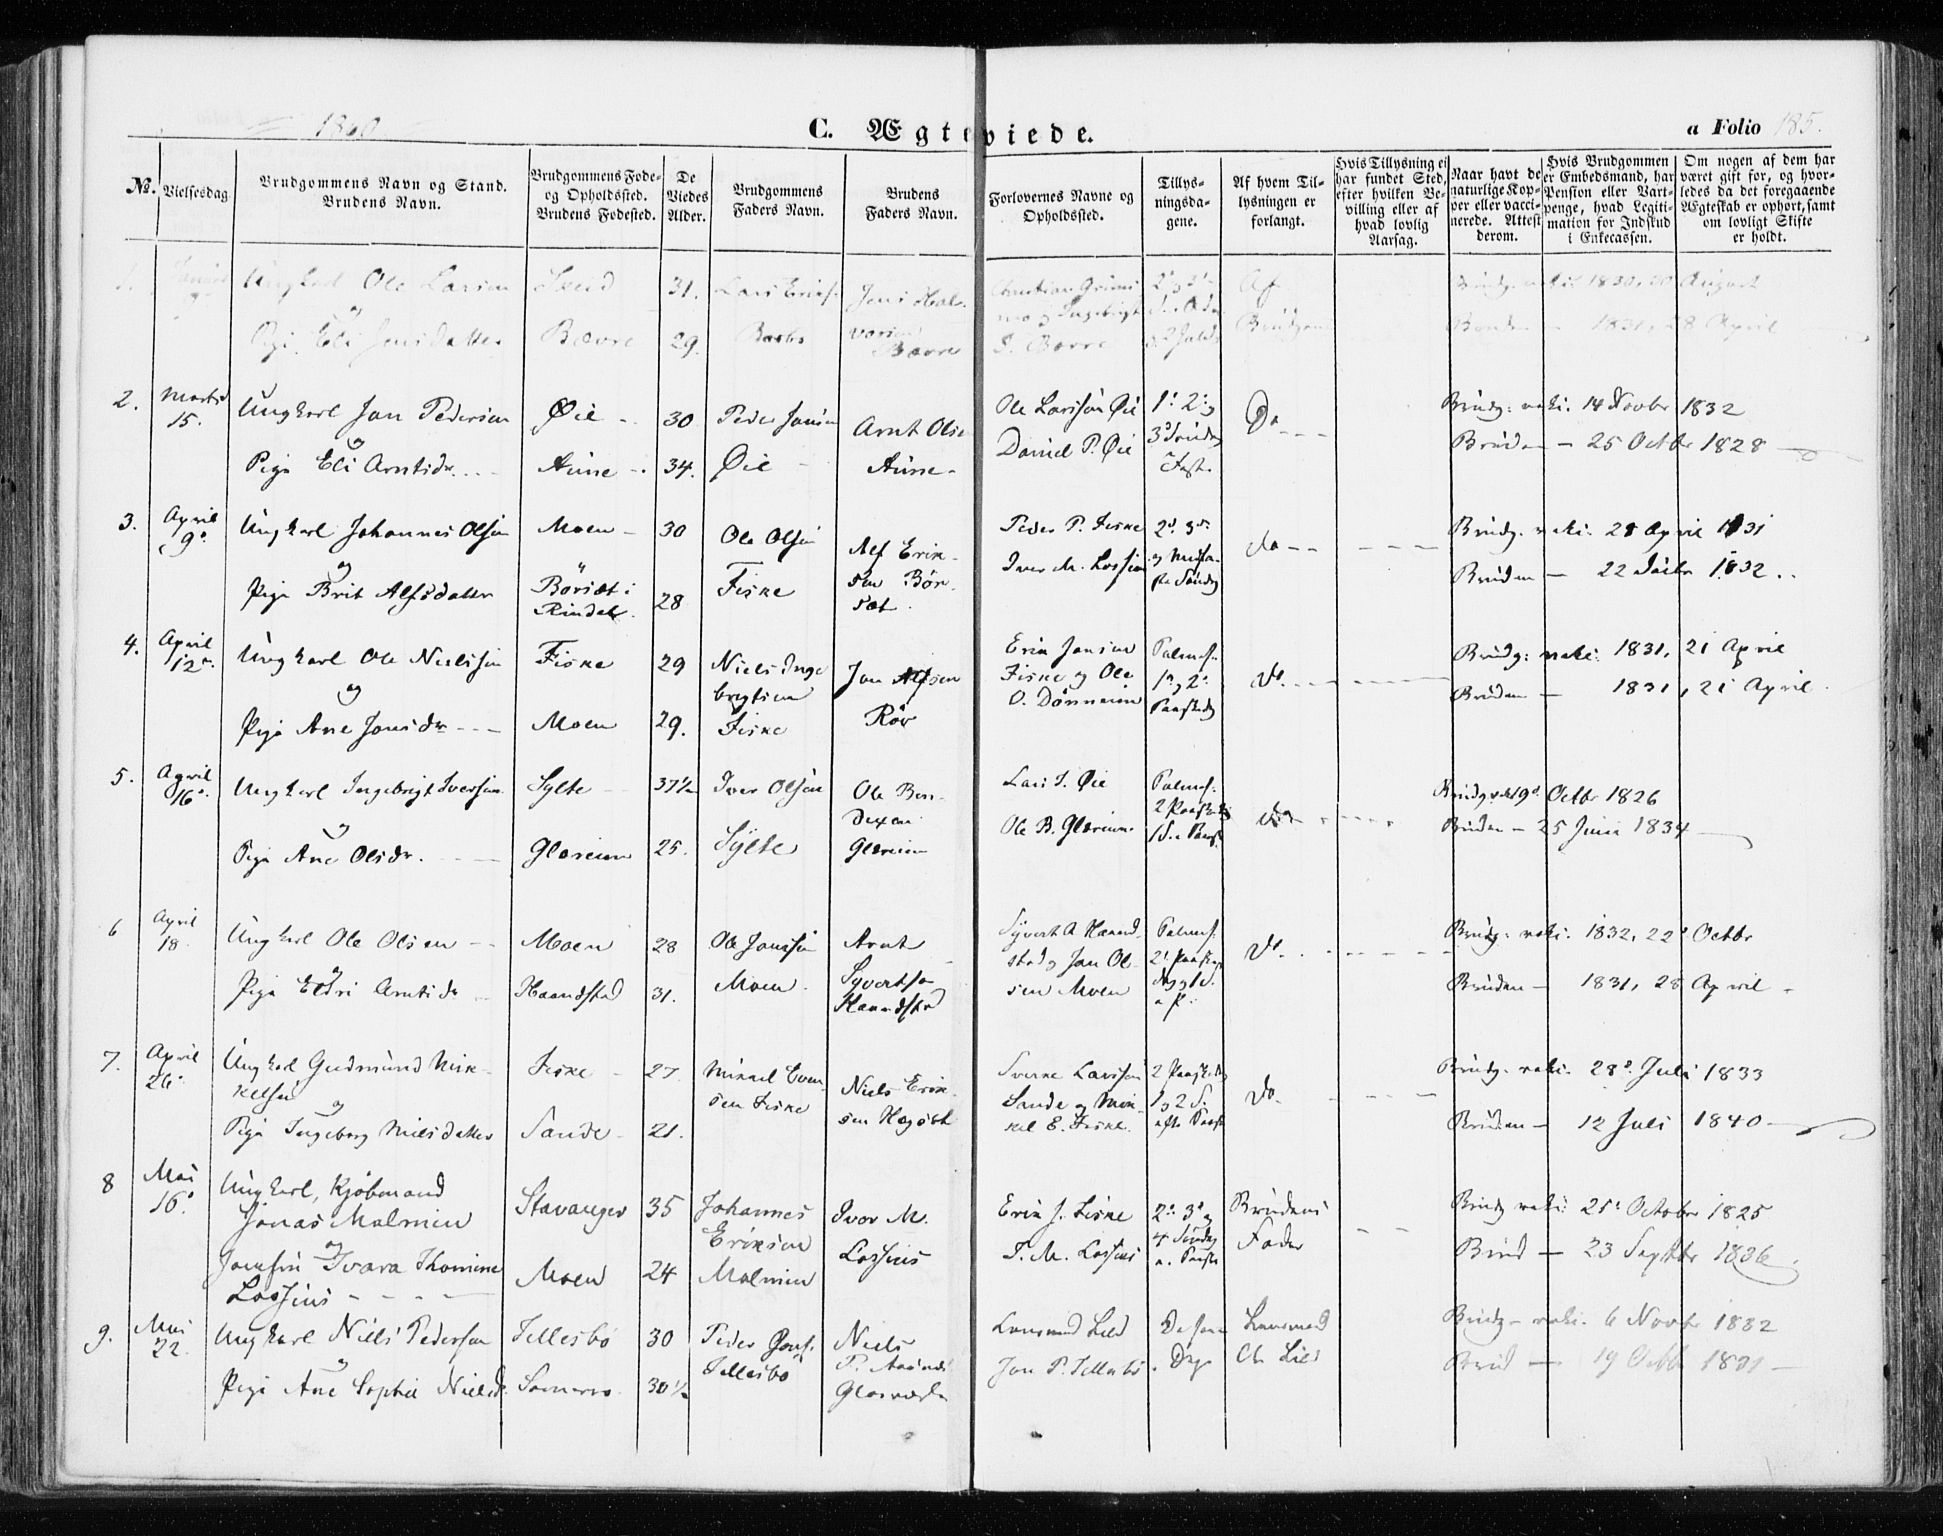 1860
C. Ægteviede.
a Folio 185.
No.
Vielsesdag.
Brudgommens Navn og Stand.
Brudens Navn.
Brudgommens Føde-
og Opholdssted.
Brudens Fødested.
De
Viedes
Alder.
Brudgommens
Faders Navn.
Brudens
Faders Navn.
Forlovernes Navne og
Opholdssted.
Tillys-
ningsda-
gene.
Af hvem Til-
lysningen er
forlangt.
Hvis Tillysning ei
har fundet Sted,
efter hvilken Be-
villing eller af
hvad lovlig
Aarsag.
Naar havt de
naturlige Kop-
per eller vacci-
nerede. Attest
derom.
Hvis Brudgommen
er Embedsmand, har
Pension eller Vart-
penge, hvad Legiti-
mation for Indskud
i Enkecassen.
Om nogen af dem har
været gift før, og hvor-
ledes da det foregaaende
Ægteskab er ophørt, samt
om lovligt Skifte
er holdt.
1.
Ungkarl Ole Larsen
Pige Eli Jonsdatter
Bævre
31.
29.
Lars Eriks.
Jens Hal-
vorsen
Bævre
Christian Grims
mo og Ingebrigt
J. Bævre
Af
Brudgom
1830, 20 August
Bruden — 1831, 28 April
2.
Marts
15.
Ungkarl Jon Pedersen
og
Pige Eli Arntsdr.
Øie
Aune
30
34.
Peder Jonsen
Øie
Arnt Olsen
Aune
Ole Larssøn Øie
Daniel P. Øie
1ste 2 og
3 Søndag
i Fast.
Do
Brudg: vaki. 14 Novbr 1832
Bruden — 25 Octbr 1828
3.
April
9d.
Ungkarl Johannes Olsen
og
Pige Brit Alfsdatter
Moen
Børsæt i
Rindal.
30
28
Ole Olsen
Fiske
Alf Erik-
sen Bør-
sæt.
Peder P. Fiske
Iver M. Lossius
2d. 3d.
Do
Brudg. vaki. 28 April 1831
Bruden — 22 Juli 1832..
4.
April
12.
Ungkarl Ole Nielssen
og
Pige Ane Jonsdr
Fiske
Moen
29
29.
Niels Inge
brigtsen
Fiske
Jon Alfsen
Røv
Erik Jonsen
Fiske og Ole
O. Dønneim
Palmes.
1 og 2
Paaskedg
Do.
Brudg: vaki: 1831, 21 April
Bruden — 1831, 21 April.
5.
April
16d.
Ungkarl Ingebrigt Iversen
og
Pige Ane Olsdr.
Sylte
Glæreim
37½
25.
Iver Olsen
Sylte
Ole Ben-
dixen
Glæreim
Lars I. Øie
Ole B. Glæreim
Palmes.
2 Paaskedg
1 S. e Paask.
Do
Brudg vaki 19d Octbr 1826
Bruden — 25 Juni 1834
6
April
18.
Ungkarl Ole Olsen
og
Pige Eldri Arntsdr
Moen
Haandstad
28
31.
Ole Jonssen
Moen.
Arnt
Syvertsen
Haandstad
Syvert A Haand
stad og Jon Ol
sen Moen
Palmes.
2 Paaske
dag og 1 S.
a P.
Do.
Brudg: vaki. 1832, 22 Octbr
Bruden — 1831, 28 April
7.
April
26d.
Ungkarl Gudmund Mik-
kelsen
og
Pige Ingeborg Nielsdatter
Fiske
Sande
27
21.
Mikael Even-
sen Fiske
Niels Erik-
sen Høgset
Sverke Larssen
Sande og Mik-
kel E. Fiske.
2 Paaskedg
1 og 2 S.
efter Paaske
Do.
Brudg. vaki. 28d. Juli 1833
Bruden — 12 Juli 1840
8
Mai
16d
Ungkarl, Kjøbmand
Jonas Malmin
og
Jomfru Ivara Thomine
Lossius
Stavanger
Moen
35
24
Johannes
Eriksen
Malmin
Iver M.
Lossius
Erik J. Fiske
T. M. Lossius
2d. 3d og
4 Søndag
a. Paaske
Brudens
Fader
Brudg vaki. 25d October 1825
Brud — 23 Septbr 1836.
9.
Mai
22.
Ungkarl Niels Pedersen
og
Pige Ane Sophie Nielsd.
Tellesbø
30
30½
Peder Jons.
Tellesbø
Niels
Lensmand Lied
Jon P. Tellesbø
De samme
Dage
Lensmand
Ch Lied
Brudg — vaki. 6 Novbr 1832
Brud — 19 Octbr 1831 —